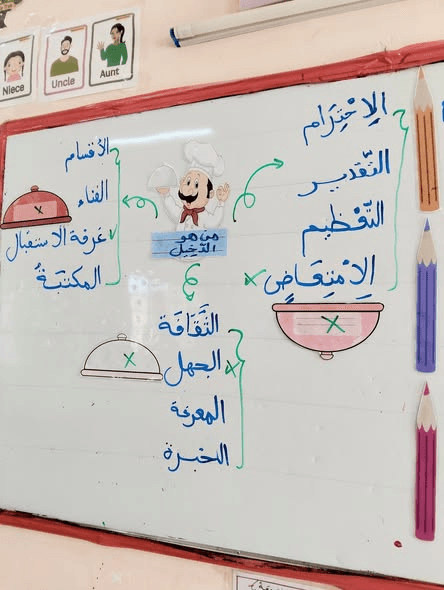 Niece
Uncle
Aunt
الِاحْتِرَام
التَّقْدير
التَّعْظيم
الِامْتِعَاضِ
من هو
الدَّخِيل
الأقسام
الفناء
غرفة الاستقبال
المكتبةُ
الثَّقَافَة
الجهل
المعرفة
الخبرة